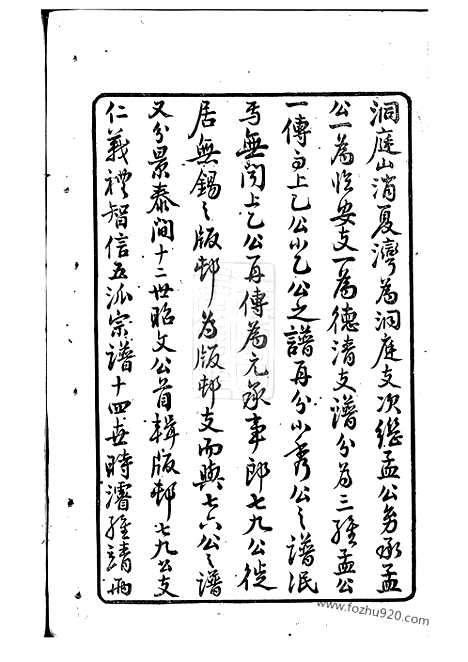 洞庭山消夏灣為洞庭支次繼孟公弟承孟
公一為臨安支一為德清支譜分為三繼孟公
一傳而上乙公小乙公之譜再分小秀公之譜泯
焉無聞上乙公再傳為元承事郎七九公徙
居無錫之版邨為版邨支而與七六公之譜
又分景泰間十二世昭文公首輯版邨七九公支
仁義禮智信五派宗譜十四世時濬經請兩
www.fozhu920.com